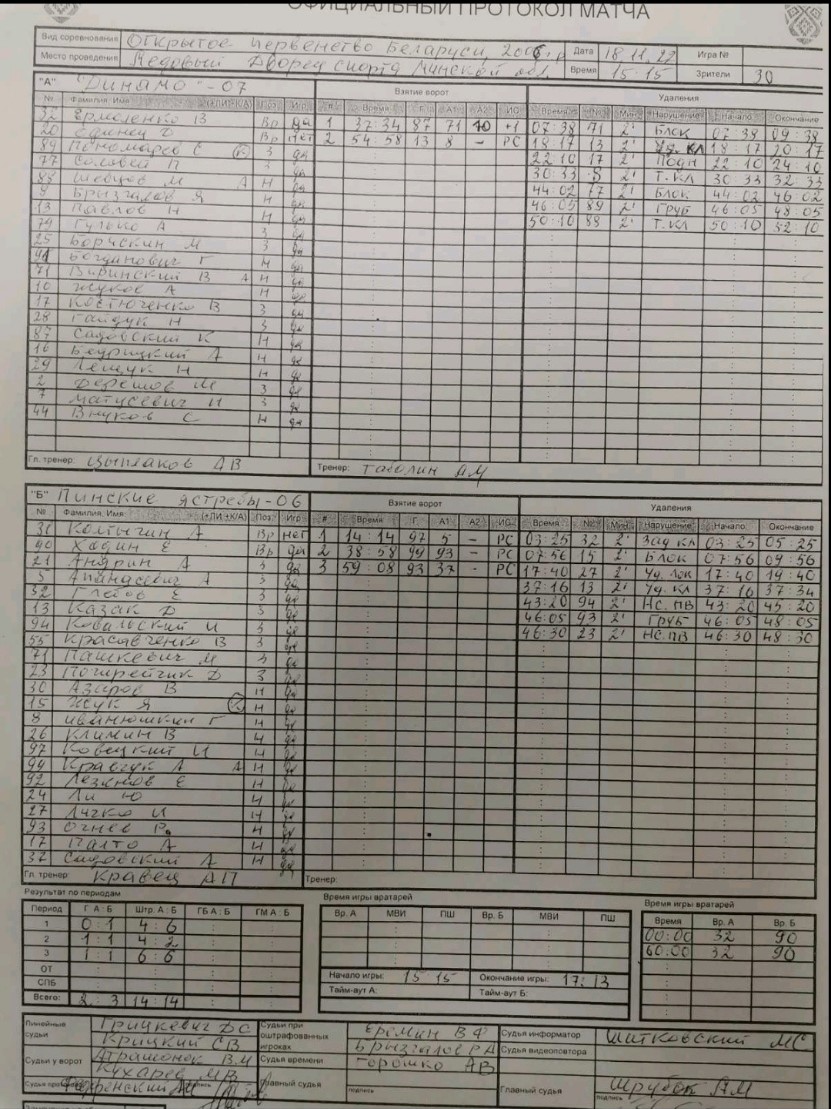 ОФИЦИАЛЬНЫЙ ПРОТОКОЛ МАТЧА
Вид соревнования Открытое первенство Беларуси, 2006 г.р Дата 18 11. 22 Игра №
Место проведения Ледовый Дворец спорта Минской обл. Время 15 15 Зрители 30
"А" "Динамо" - 07 Взятие ворот Удаления
№ Фамилия, Имя (+ЛИ +К/А) Поз Игр # Время Г А1 А2 ИС Время № Мин Нарушение Начало Окончание
32 Ермоленко В Вр да 1 37:34 87 71 10 +1 07:38 71 2' Блок 07:38 09:38
20 Единец D Вр Нет 2 54:58 13 8 - РС 18 17 13 2' Уд. Кл 18:17 20 17
89 Пономарев Е К З да 22 10 17 2' Подн 22 10 24 10
77 Соловей П З да 30 33 8 2' Т.Кл 30 33 32 33
88 Шевцов М А Н да 44:02 77 2' Блок 44:02 46 02
9 Брызгалов Я Н да 46:05 89 2' Груб 46:05 48 05
13 Павлов Н Н да 50:10 88 2' Т.Кл 50 10 52 10
79 Гулько А З да
25 Борискин М З да
91 Богданович Г Н да
71 Виринский В А Н да
10 Жуков А Н да
17 Костюченко В З да
28 Гайдук Н З да
87 Садовский К Н да
16 Бедрицкий А Н да
29 Лещук Н Н да
2 М З да
7 Матусевич И З да
44 Внуков Е Н да
Гл. тренер: Цыплаков ДВ Тренер: Таболин АМ
"Б" Пинские Ястребы - 06 Взятие ворот Удаления
№ Фамилия, Имя (+ЛИ +К/А) Поз Игр # Время Г А1 А2 ИС Время № Мин Нарушение Начало Окончание
31 Колтыгин А Вр нет 1 14:14 97 5 - РС 03:25 32 2' Зад Кл 03:25 05 25
90 Хадин Е Вр да 2 38:58 99 93 - РС 07 56 15 2' Блок 07:56 09 56
21 Андрин А З да 3 59:08 93 37 - РС 17:40 27 2' Уд. Лок 17:40 19:40
5 Апанасевич А З да 37:16 13 2' Уд. Кл 37:16 37 34
32 Глебов Е З да 43:20 94 2' НС.ПВ 43:20 45:20
13 Казак D З да 46:05 93 2' Груб 46:05 48:05
94 Ковальский И З да 46:30 23 2' НС.ПВ 46:30 48:30
55 Красавченко В З да
71 Пашкевич М З да
23 D З да
30 Азаров В Н да
15 Жук Я К Н да
8 Иванюшкин Г Н да
26 Климин В Н да
97 Ковецкий И Н да
99 Кравчук А А Н да
92 Лезжнов Е Н да
24 Ли Ю Н да
27 Личко И Н да
93 Огнев Р. Н да
17 Палто А Н да
37 Садовский А Н да
Гл. тренер: Кравец АП Тренер:
Результат по периодам Время игры вратарей Время игры вратарей
Период Г А : Б Штр. А : Б ГБ А : Б ГМ А : Б Вр. А МВИ ПШ Вр. Б МВИ ПШ Время Вр. А Вр. Б
1 0:1 4:6 00:00 32 90
2 1:1 4:2 60:00 32 90
3 1:1 6:6
ОТ Начало игры: 15 15 Окончание игры: 17:13
СПБ Тайм-аут А: Тайм-аут Б:
Всего: 2:3 14:14
Линейные судьи Грицкевич DС Судьи при оштрафованных игроках Еремин ВФ Судья информатор Шитковский МС
Крицкий СВ Брызгалов РА Судья видеоповтора
Судьи у ворот Атрашонок ВИ Судья времени Горошко АВ
Кухарев МВ
Главный судья подпись Главный судья Шрубок АМ